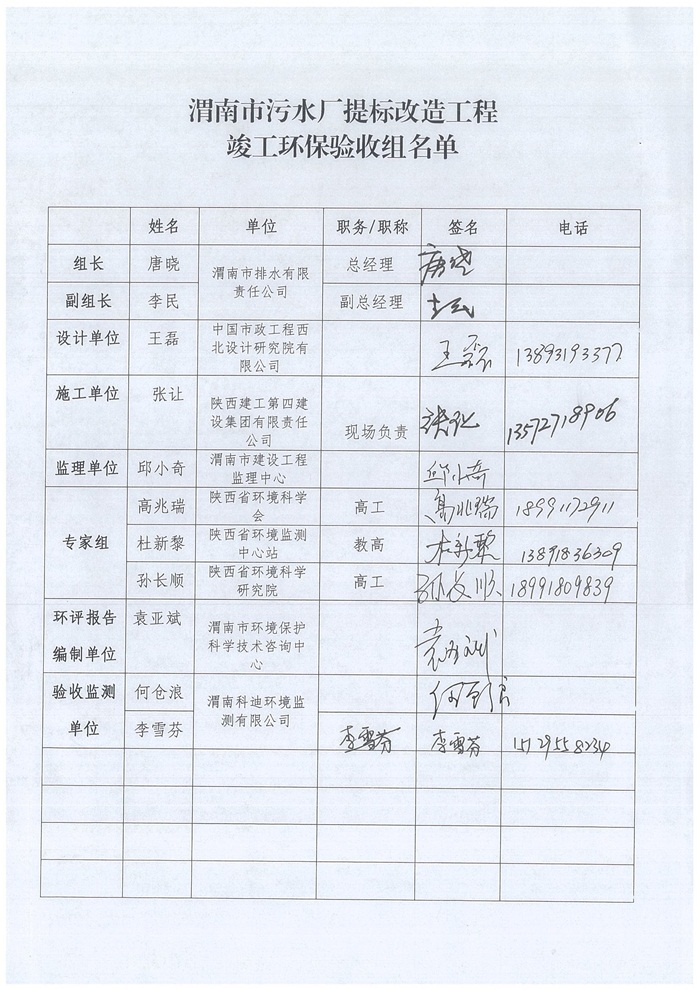 渭南市污水厂提标改造工程
竣工环保验收组名单
姓名 单位 职务/职称 签名 电话
组长 唐晓 渭南市排水有限
责任公司 总经理 唐晓
副组长 李民 副总经理 李民
设计单位 王磊 中国市政工程西
北设计研究院有
限公司 王磊 13893193377
施工单位 张让 陕西建工第四建
设集团有限责任
公司 现场负责 张让 13572718906
监理单位 邱小奇 渭南市建设工程
监理中心 邱小奇
专家组 高兆瑞 陕西省环境科学
会 高工 高兆瑞 18991172911
杜新黎 陕西省环境监测
中心站 教高 杜新黎 13891836309
孙长顺 陕西省环境科学
研究院 高工 孙长顺 18991809839
环评报告
编制单位 袁亚斌 渭南市环境保护
科学技术咨询中
心 袁亚斌
验收监测
单位 何仓浪 渭南科迪环境监
测有限公司 何仓浪
李雪芬 李雪芬 李雪芬 15129558234